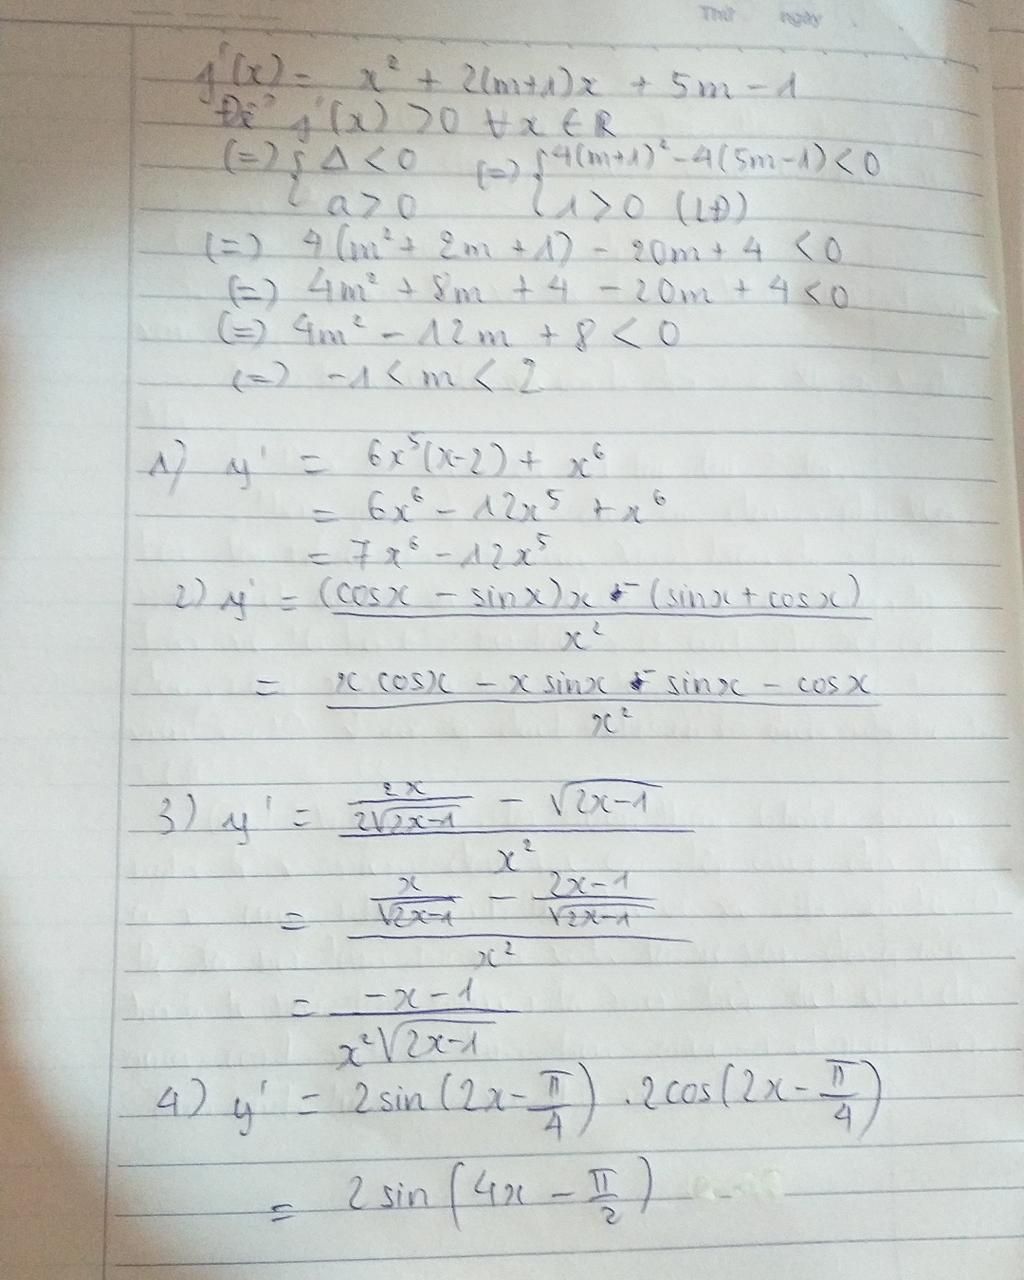 Thứ ngày
f'(x) = x² + 2(m+1)x + 5m - 1
Để f'(x) > 0 ∀x ∈ R
(=) { Δ < 0 (=) { 4(m+1)² - 4(5m-1) < 0
{ a > 0 { 1 > 0 (LĐ)
(=) 4(m² + 2m + 1) - 20m + 4 < 0
(=) 4m² + 8m + 4 - 20m + 4 < 0
(=) 4m² - 12m + 8 < 0
(=) -1 < m < 2
1) y' = 6x⁵(x-2) + x⁶
= 6x⁶ - 12x⁵ + x⁶
= 7x⁶ - 12x⁵
2) y' = ((cosx - sinx)x - (sinx + cosx)) / x²
= (x cosx - x sinx - sinx - cosx) / x²
3) y' = (2x/(2√(2x-1)) - √(2x-1)) / x²
= (x/√(2x-1) - (2x-1)/√(2x-1)) / x²
= (-x-1) / (x²√(2x-1))
4) y' = 2sin(2x - π/4) . 2cos(2x - π/4)
= 2sin(4x - π/2)